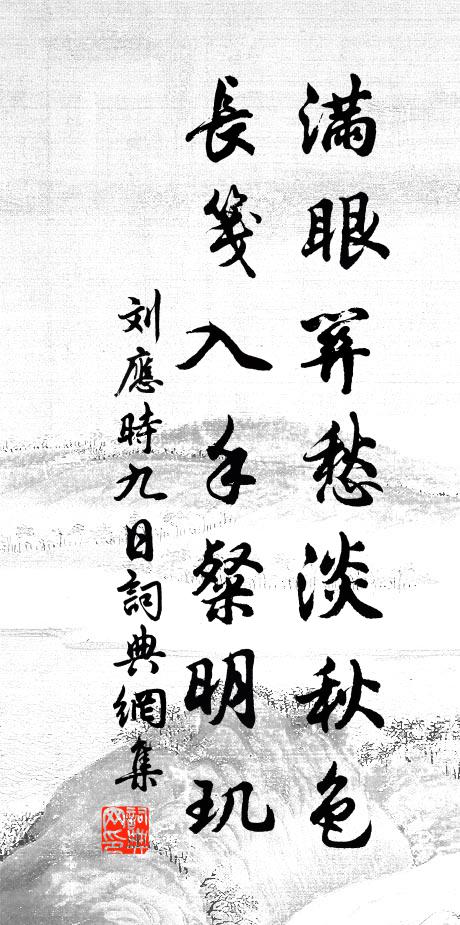 滿眼羿愁淡秋色
長箋入手粲明玑
刘應時九日詞典網集